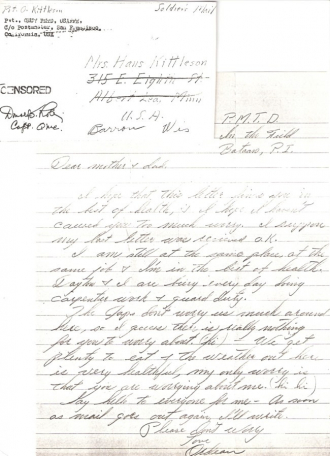 Pvt. G. Kittleson
Soldiers Mail
Pvt.,
c/o Postmaster, San Francisco,
California, USA
Mrs Hans Kittleson
315 E. Eighth St
Albert Lea, Minn
U.S.A
Barron Wis
CENSORED
Capt.
P.M.T.D
In the Field
Bataan, P.I.
Dear mother & dad.
I hope that this letter finds you in
the best of health, & I hope I haven't
caused you too much worry. I suppose
my last letter was received o.k.
I am still at the same place, at the
same job & I'm in the best of health.
& I are busy every day doing
carpenter work & guard duty.
The Japs don't worry us much around
here, so I guess there is really nothing
for you to worry about. We get
plenty to eat & the weather out here
is very healthful, my only worry is
that you are worrying about me. (hi hi)
Say hello to everyone for me - As soon
as mail goes out again, I'll write.
Please don't worry
Love